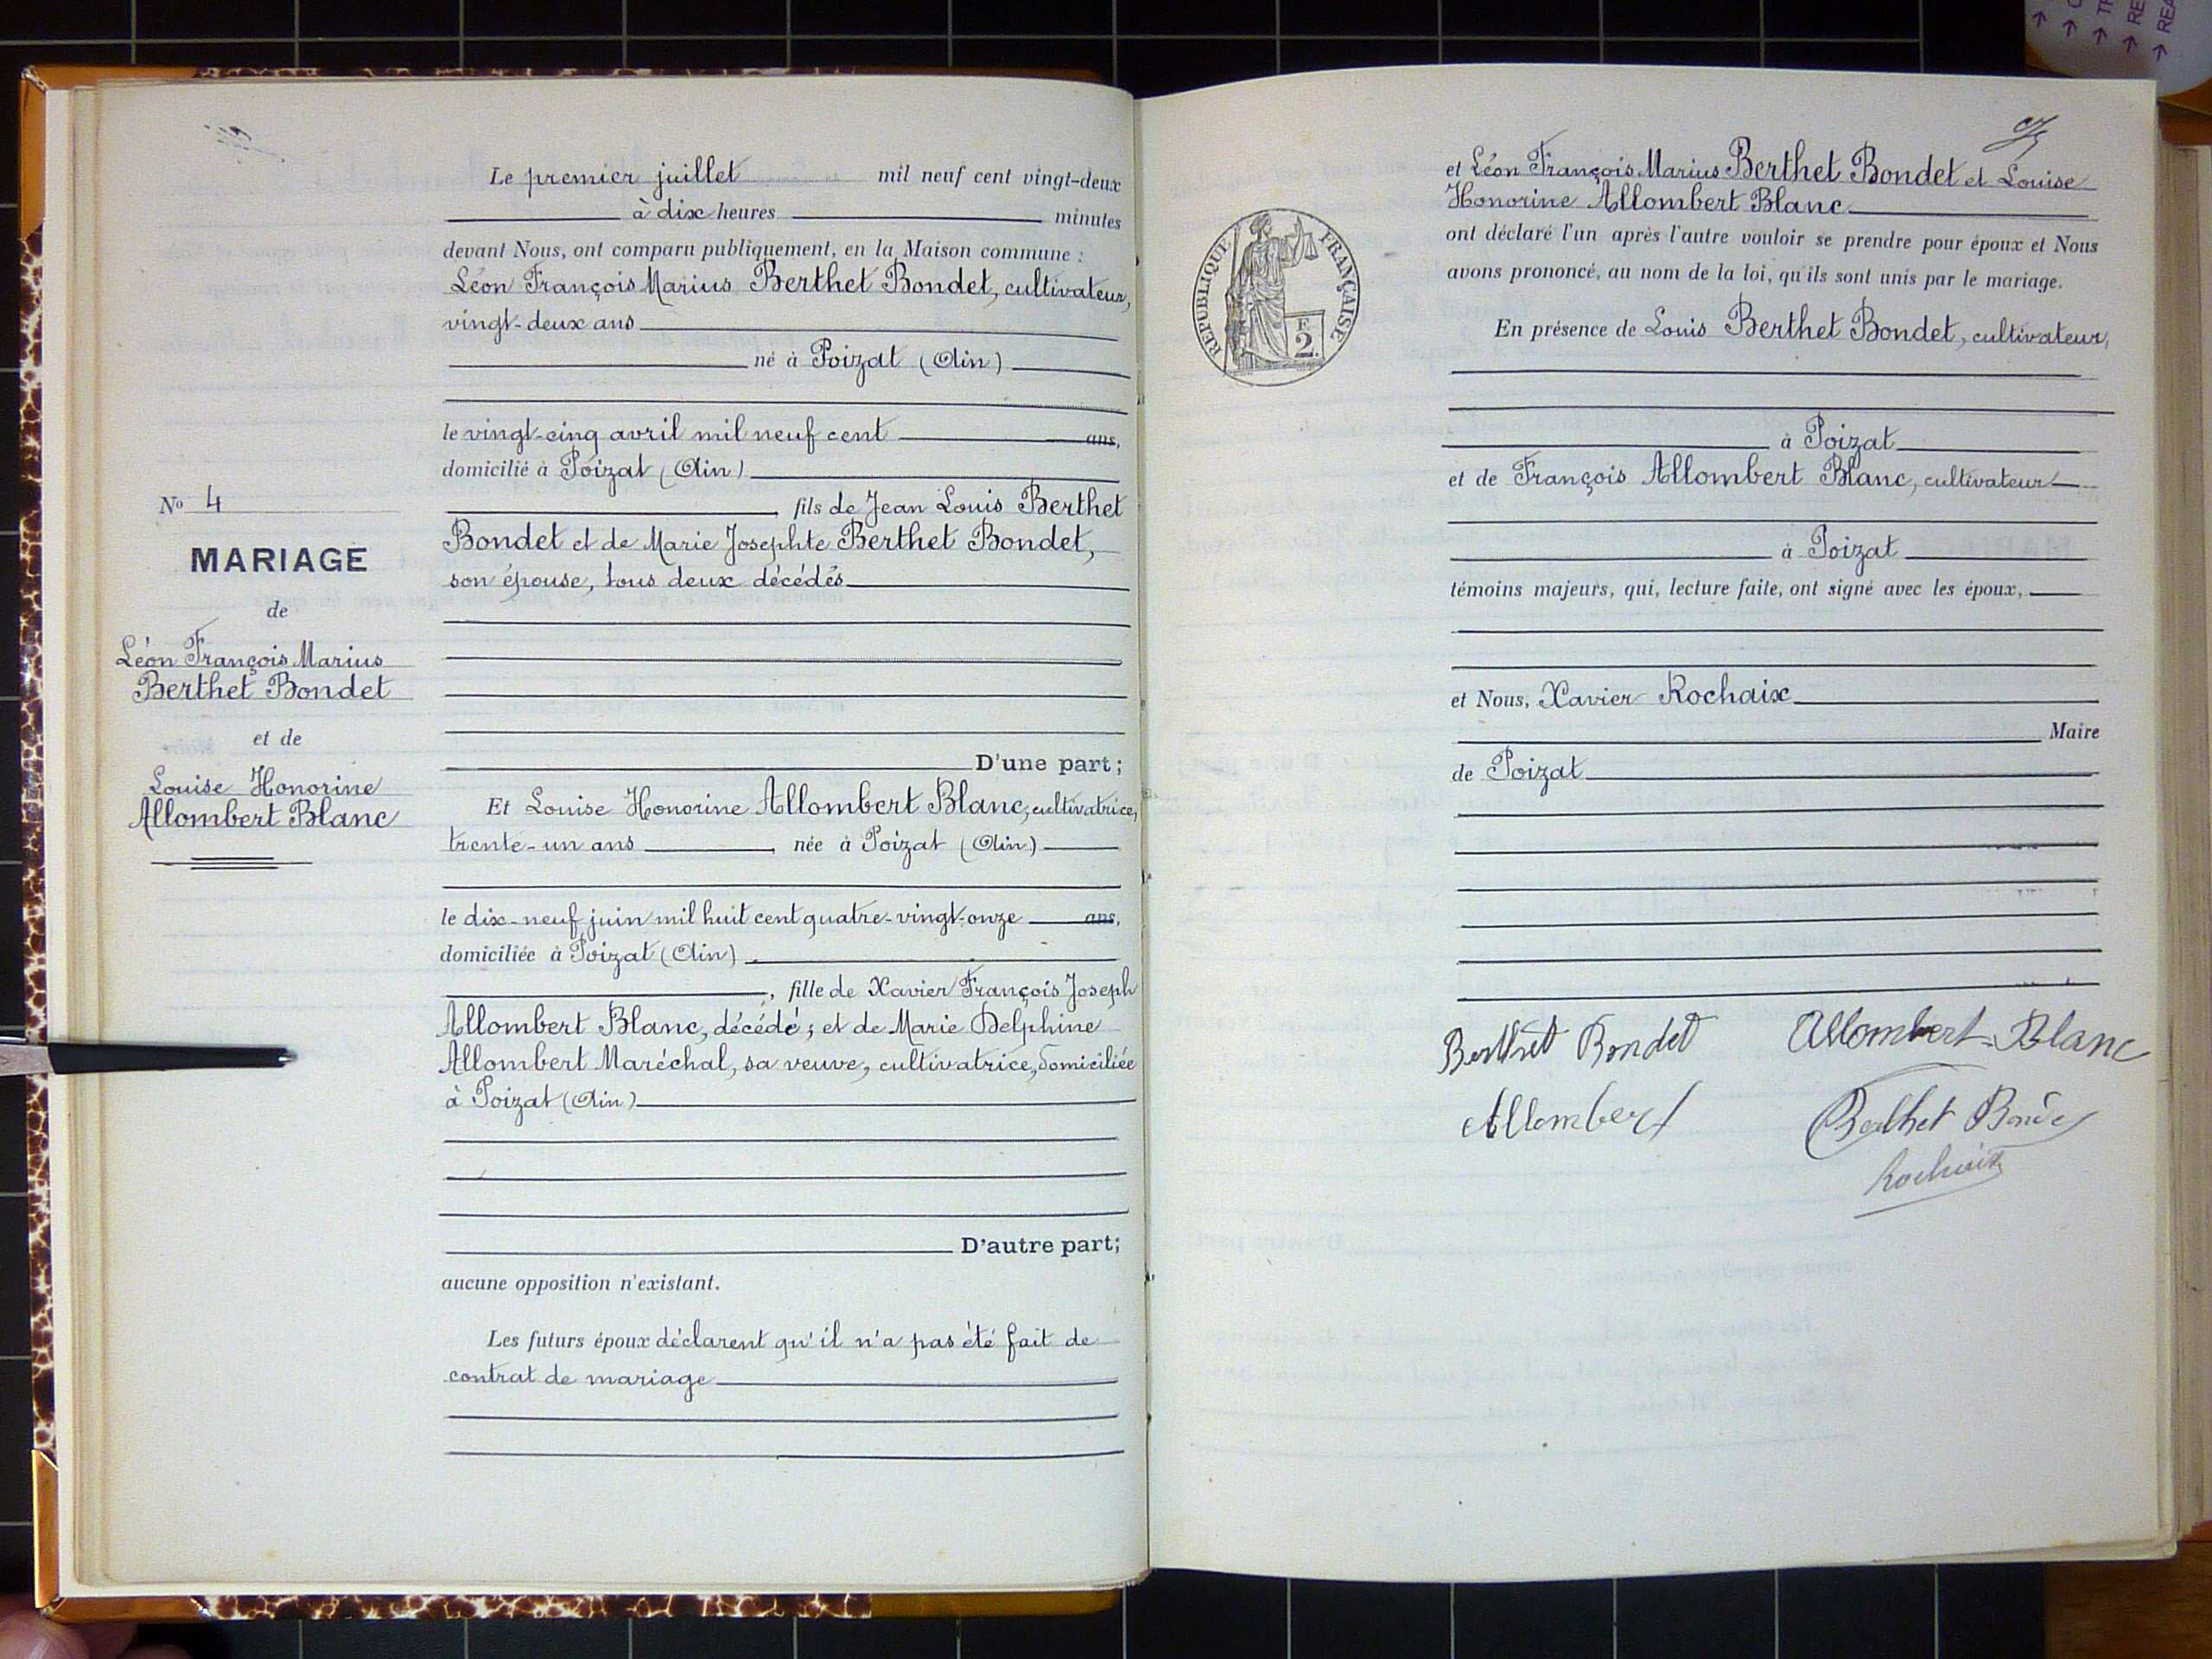 Le premier juillet mil neuf cent vingt-deux
à dix heures minutes
devant Nous, ont comparu publiquement, en la Maison commune :
Léon François Marius Berthet Bondet, cultivateur,
vingt-deux ans
né à Poizat (Ain)
le vingt-cinq avril mil neuf cent ans,
domicilié à Poizat (Ain)
, fils de Jean Louis Berthet
Bondet et de Marie Josephte Berthet Bondet,
son épouse, tous deux décédés
D'une part ;
Et Louise Honorine Allombert Blanc, cultivatrice,
trente-un ans , née à Poizat (Ain)
le dix-neuf juin mil huit cent quatre-vingt-onze ans,
domiciliée à Poizat (Ain)
, fille de Xavier François Joseph
Allombert Blanc, décédé ; et de Marie Delphine
Allombert Maréchal, sa veuve, cultivatrice, domiciliée
à Poizat (Ain)
D'autre part ;
aucune opposition n'existant.
Les futurs époux déclarent qu'il n'a pas été fait de
contrat de mariage
No 4
MARIAGE
de
Léon François Marius
Berthet Bondet
et de
Louise Honorine
Allombert Blanc
RÉPUBLIQUE FRANÇAISE
F.
2.
et Léon François Marius Berthet Bondet et Louise
Honorine Allombert Blanc
ont déclaré l'un après l'autre vouloir se prendre pour époux et Nous
avons prononcé, au nom de la loi, qu'ils sont unis par le mariage.
En présence de Louis Berthet Bondet, cultivateur,
à Poizat
et de François Allombert Blanc, cultivateur
à Poizat
témoins majeurs, qui, lecture faite, ont signé avec les époux,
et Nous, Xavier Rochaix
Maire
de Poizat
Berthet Bondet Allombert-Blanc
Allombert Berthet Bonde
Rochaix